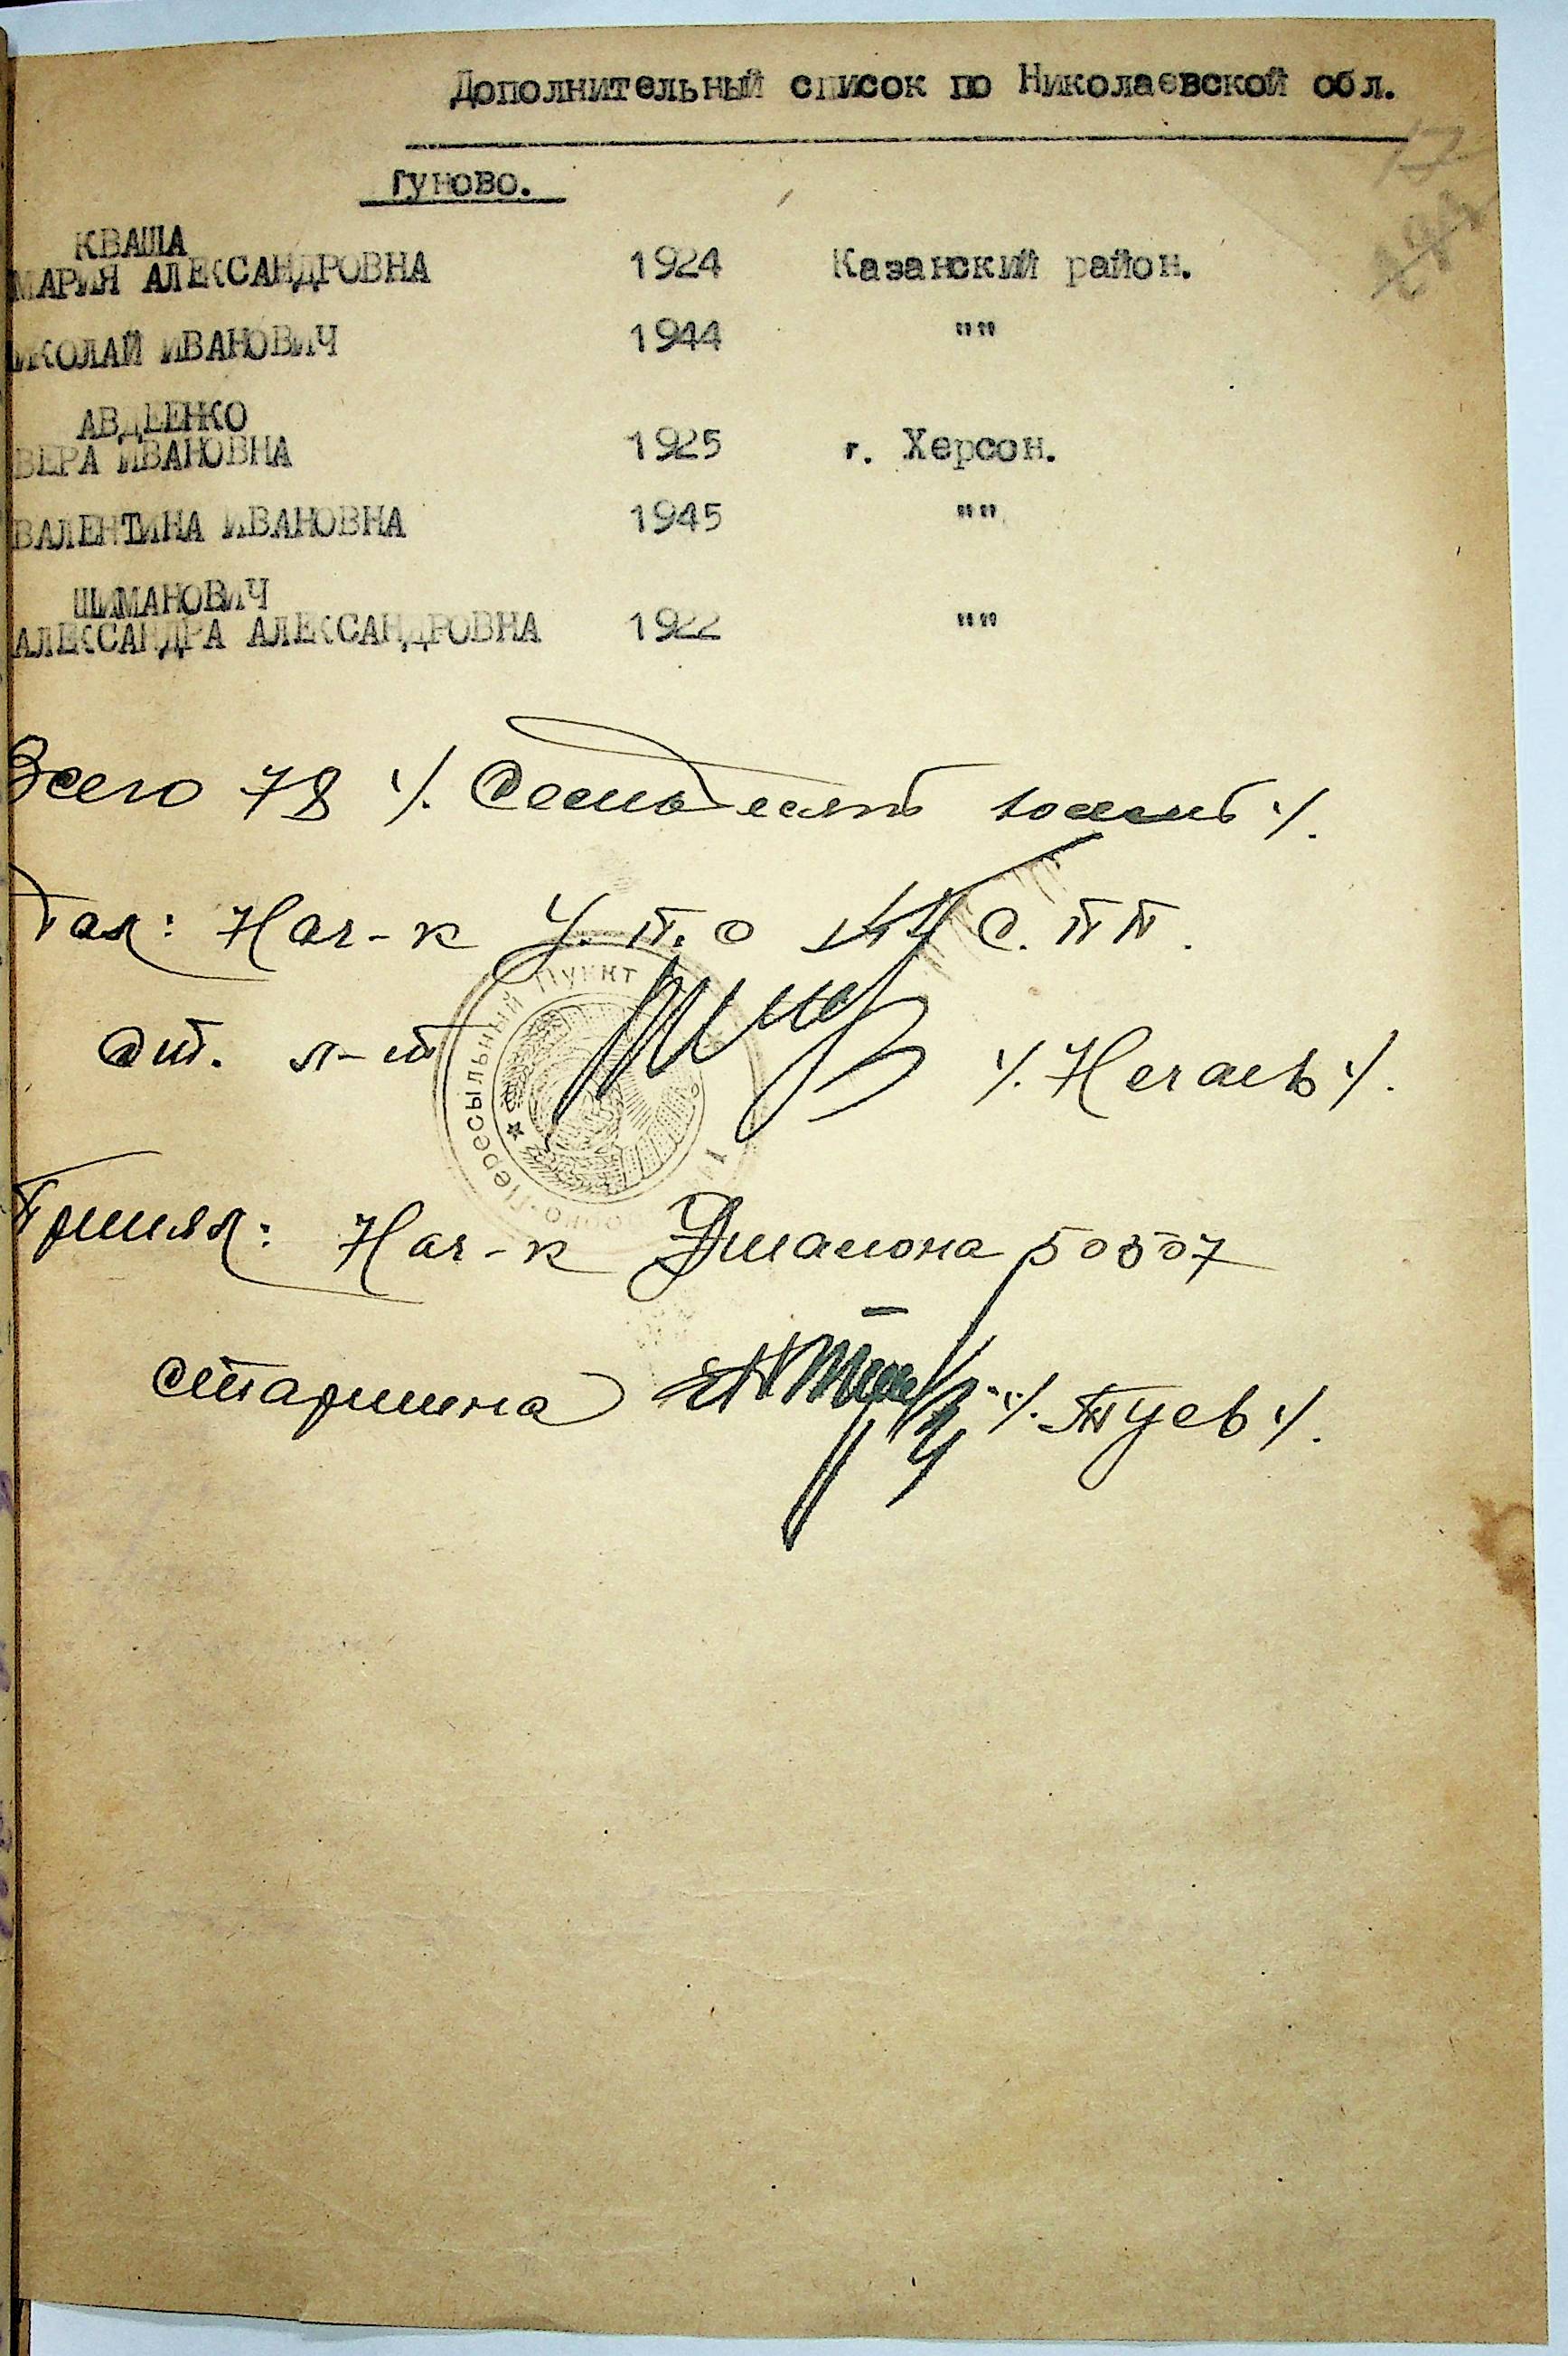 Дополнительный список по Николаевской обл.
Гуново.
КВАША
МАРИЯ АЛЕКСАНДРОВНА 1924 Казанский район.
ИКОЛАЙ ИВАНОВИЧ 1944 ""
АВДЕЕНКО
ВЕРА ИВАНОВНА 1925 г. Херсон.
ВАЛЕНТИНА ИВАНОВНА 1945 ""
ШИМАНОВИЧ
АЛЕКСАНДРА АЛЕКСАНДРОВНА 1922 ""
Всего 78 ./. Семьдесят восемь ./.
дал: Нач-к У.П.О С.ПП.
Пункт
ст. л-т ./. Нечаев ./.
Пересыльный
Принял: Нач-к Эшалона 50507
старшина ./. Туев ./.